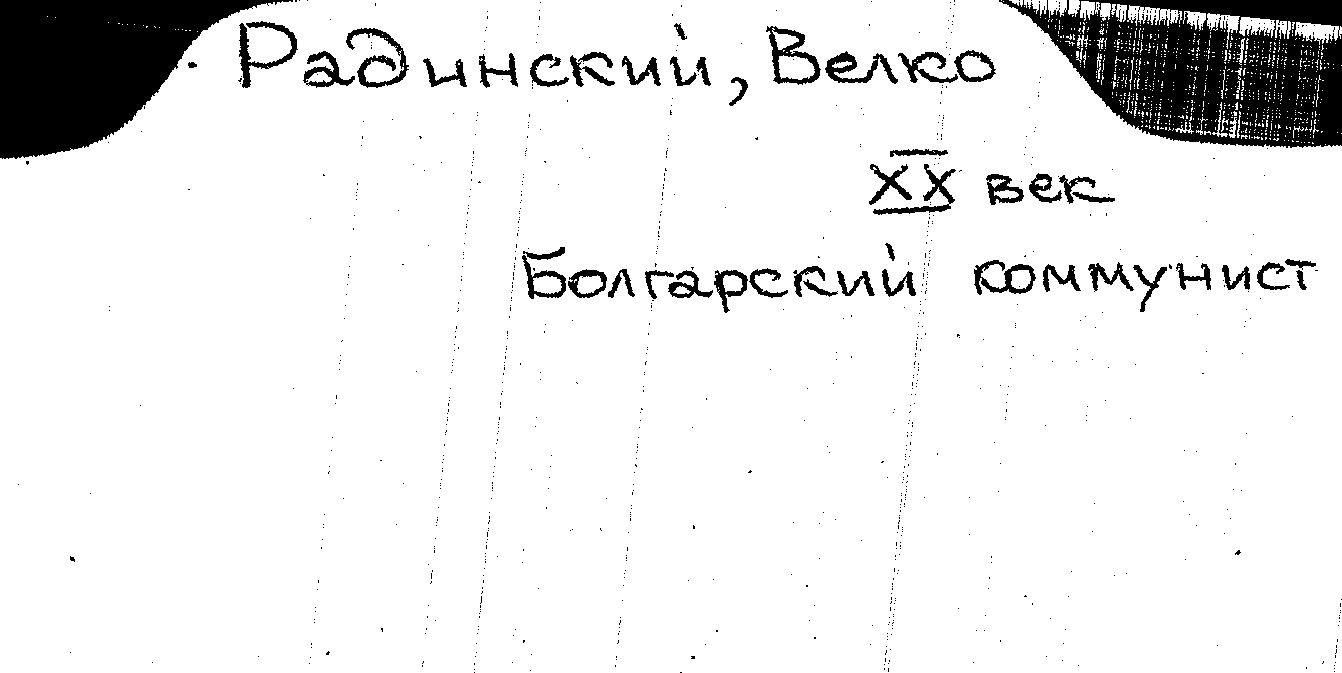 Радинский, Велко
XX век
Болгарский коммунист